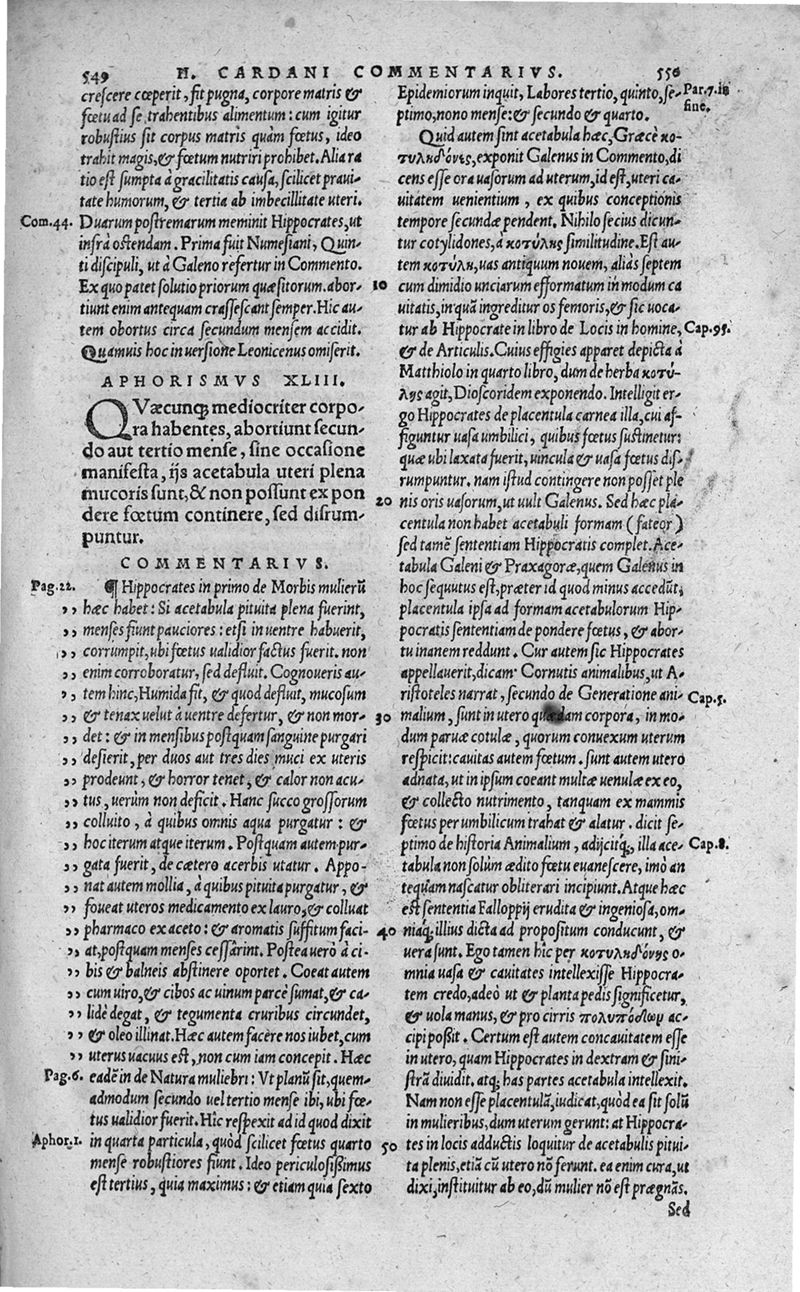 549 H. CARDANI COMMENTARIVS. 550
crescere cœperit, fit pugna, corpore matris &
fœtu ad se trahentibus alimentum: cum igitur
robustius sit corpus matris quàm fœtus, ideo
trahit magis, & fœtum nutriri prohibet. Alia ra
tio est sumpta à gracilitatis causa, scilicet praui-
tate humorum, & tertia ab imbecillitate uteri.
Com.44. Duarum postremarum meminit Hippocrates, ut
infrà ostendam. Prima fuit Numesiani, Quin-
ti discipuli, ut à Galeno refertur in Commento.
Ex quo patet solutio priorum quæsitorum. abor- 10
tiunt enim antequam crassescant semper. Hic au-
tem obortus circa secundum mensem accidit.
Quamuis hoc in uersione Leonicenus omiserit.
APHORISMVS XLIII.
QVæcunq; mediocriter corpo-
ra habentes, abortiunt secun-
do aut tertio mense, sine occasione
manifesta, ijs acetabula uteri plena
mucoris sunt, & non possunt ex pon
dere fœtum continere, sed disrum- 20
puntur.
COMMENTARIVS.
Pag.22. ¶ Hippocrates in primo de Morbis mulierũ
,, hæc habet: Si acetabula pituita plena fuerint,
,, menses fiunt pauciores: etsi in uentre habuerit,
,, corrumpit, ubi fœtus ualidior factus fuerit. non
,, enim corroboratur, sed defluit. Cognoueris au-
,, tem hinc, Humida fit, & quod defluit, mucosum
,, & tenax uelut à uentre defertur, & non mor- 30
,, det: & in mensibus postquam sanguine purgari
,, desierit, per duos aut tres dies muci ex uteris
,, prodeunt, & horror tenet, & calor non acu-
,, tus, uerùm non deficit. Hanc succo grossorum
,, colluito, à quibus omnis aqua purgatur: &
,, hoc iterum atque iterum. Postquam autem pur-
,, gata fuerit, de cætero acerbis utatur. Appo-
,, nat autem mollia, à quibus pituita purgatur, &
,, foueat uteros medicamento ex lauro, & colluat
,, pharmaco ex aceto: & aromatis suffitum faci- 40
,, at, postquam menses cessârint. Postea uerò à ci-
,, bis & balneis abstinere oportet. Coeat autem
,, cum uiro, & cibos ac uinum parcè sumat, & ca-
,, lidè degat, & tegumenta cruribus circundet,
,, & oleo illinat. Hæc autem facere nos iubet, cum
,, uterus uacuus est, non cum iam concepit. Hæc
Pag.6. eadẽ in de Natura muliebri: Vt planũ sit, quem-
admodum secundo uel tertio mense ibi, ubi fœ-
tus ualidior fuerit. Hîc respexit ad id quod dixit
Aphor.1. in quarta particula, quòd scilicet fœtus quarto 50
mense robustiores fiunt. Ideo periculosissimus
est tertius, quia maximus: & etiam quia sexto
Epidemiorum inquit, Labores tertio, quinto, se- Par.7.in
ptimo, nono mense: & secundo & quarto. fine.
Quid autem sint acetabula hæc, Græcè κο-
τυληδόνες, exponit Galenus in Commento, di
cens esse ora uasorum ad uterum, id est, uteri ca-
uitatem uenientium, ex quibus conceptionis
tempore secundæ pendent. Nihilo secius dicun-
tur cotylidones, à κοτύλης similitudine. Est au-
tem κοτύλη, uas antiquum nouem, aliàs septem
cum dimidio unciarum efformatum in modum ca
uitatis, in quã ingreditur os femoris, & sic uoca-
tur ab Hippocrate in libro de Locis in homine, Cap.95.
& de Articulis. Cuius effigies apparet depicta à
Matthiolo in quarto libro, dum de herba κοτύ-
λης agit, Dioscoridem exponendo. Intelligit er-
go Hippocrates de placentula carnea illa, cui af-
figuntur uasa umbilici, quibus fœtus sustinetur:
quæ ubi laxata fuerit, uincula & uasa fœtus dis-
rumpuntur. nam istud contingere non posset ple
nis oris uasorum, ut uult Galenus. Sed hæc pla-
centula non habet acetabuli formam (fateor)
sed tamẽ sententiam Hippocratis complet. Ace-
tabula Galeni & Praxagoræ, quem Galenus in
hoc sequutus est, præter id quod minus accedũt,
placentula ipsa ad formam acetabulorum Hip-
pocratis sententiam de pondere fœtus, & abor-
tu inanem reddunt. Cur autem sic Hippocrates
appellauerit, dicam. Cornutis animalibus, ut A-
ristoteles narrat, secundo de Generatione ani- Cap.5.
malium, sunt in utero quædam corpora, in mo-
dum paruæ cotulæ, quorum conuexum uterum
respicit: cauitas autem fœtum. sunt autem utero
adnata, ut in ipsum coeant multæ uenulæ ex eo,
& collecto nutrimento, tanquam ex mammis
fœtus per umbilicum trahat & alatur. dicit se-
ptimo de historia Animalium, adijcitq́; illa ace- Cap.8.
tabula non solùm ædito fœtu euanescere, imò an
tequam nascatur obliterari incipiunt. Atque hæc
est sententia Falloppij erudita & ingeniosa, om-
niaq́; illius dicta ad propositum conducunt, &
uera sunt. Ego tamen hîc per κοτυληδόνης o-
mnia uasa & cauitates intellexisse Hippocra-
tem credo, adeò ut & planta pedis significetur,
& uola manus, & pro cirris πολυπόδωμ ac-
cipi possit. Certum est autem concauitatem esse
in utero, quam Hippocrates in dextram & sini-
strã diuidit. atq; has partes acetabula intellexit.
Nam non esse placentulã, iudicat, quòd ea sit solũ
in mulieribus, dum uterum gerunt: at Hippocra-
tes in locis adductis loquitur de acetabulis pitui-
ta plenis, etiã cũ utero nõ ferunt. ea enim cura, ut
dixi, instituitur ab eo, dũ mulier nõ est prægnãs.
Sed